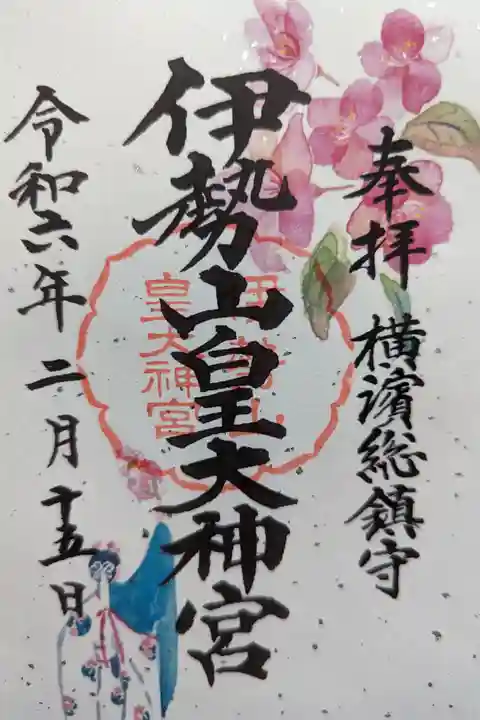 奉拝 横濱総鎮守
伊勢山皇大神宮
伊勢山
皇大神宮
令和六年 二月十五日